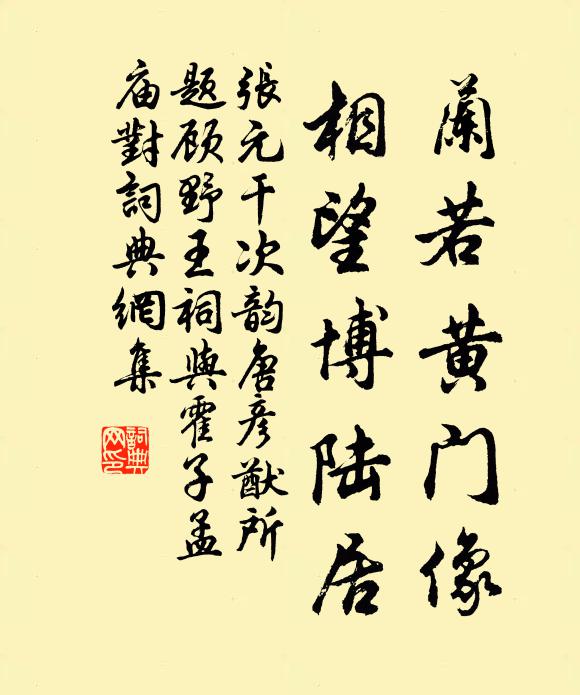 蘭若黄门像
相望博陆居
張元干次韵唐彦猷所
题顾野王祠與霍子孟
庙對詞典網集
詞典網印